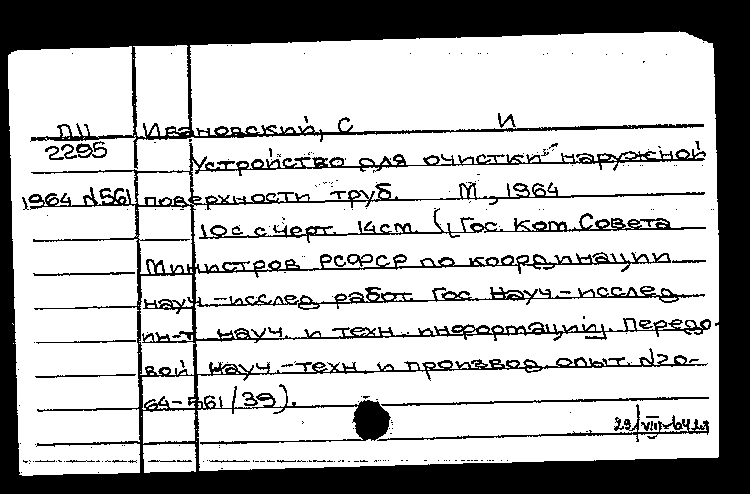 П11 Ивановский, С И
2295 Устройство для очистки наружной
1964 №561 поверхности труб. М., 1964
10с с черт. 14см. (Гос. Ком Совета
Министров РСФСР по координации
науч.-исслед работ. Гос. Науч.-исслед
ин-т науч. и техн. информации. Передо-
вой науч.-техн. и производ. опыт. №20-
64-561/39).
29/VIII-64